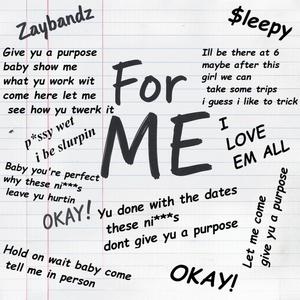 Zaybandz
$leepy
Give yu a purpose
baby show me
what yu work wit
come here let me
see how yu twerk it
Ill be there at 6
maybe after this
girl we can
take some trips
i guess i like to trick
For
ME
p*ssy wet
i be slurpin
I
LOVE
EM ALL
Baby you're perfect
why these ni***s
leave yu hurtin
OKAY!
Yu done with the dates
these ni***s
dont give yu a purpose
Let me come
give yu a purpose
Hold on wait baby come
tell me in person
OKAY!